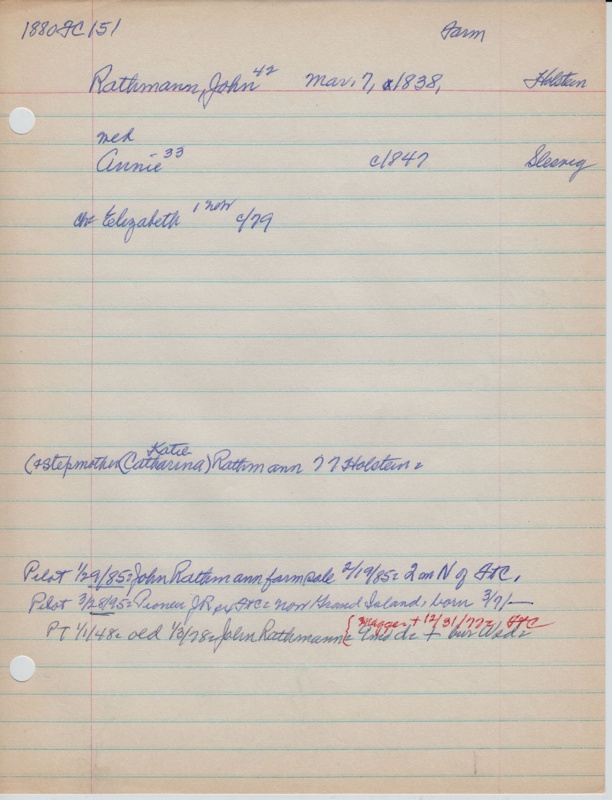 1880 FC 151 Farm
Rathmann, John 42 Mar. 7, c1838, Holstein
med
Annie 33 c1847 Sleswig
ch Elizabeth 1 Nov c/79
Katie
(+ stepmother (Catharina) Rathmann 77 Holstein =
Pilot 1/29/85 = John Rathmann farm sale 2/19/85 = 2 m N of FtC.
Pilot 3/28/95 = Pioneer JR pr FtC = now Grand Island, born 3/7/—
Magge + 12/31/77 = FtC
PT 1/1/48 = old 1/3/78 = John Rathmann = 9 mo d = + bur Wsd =